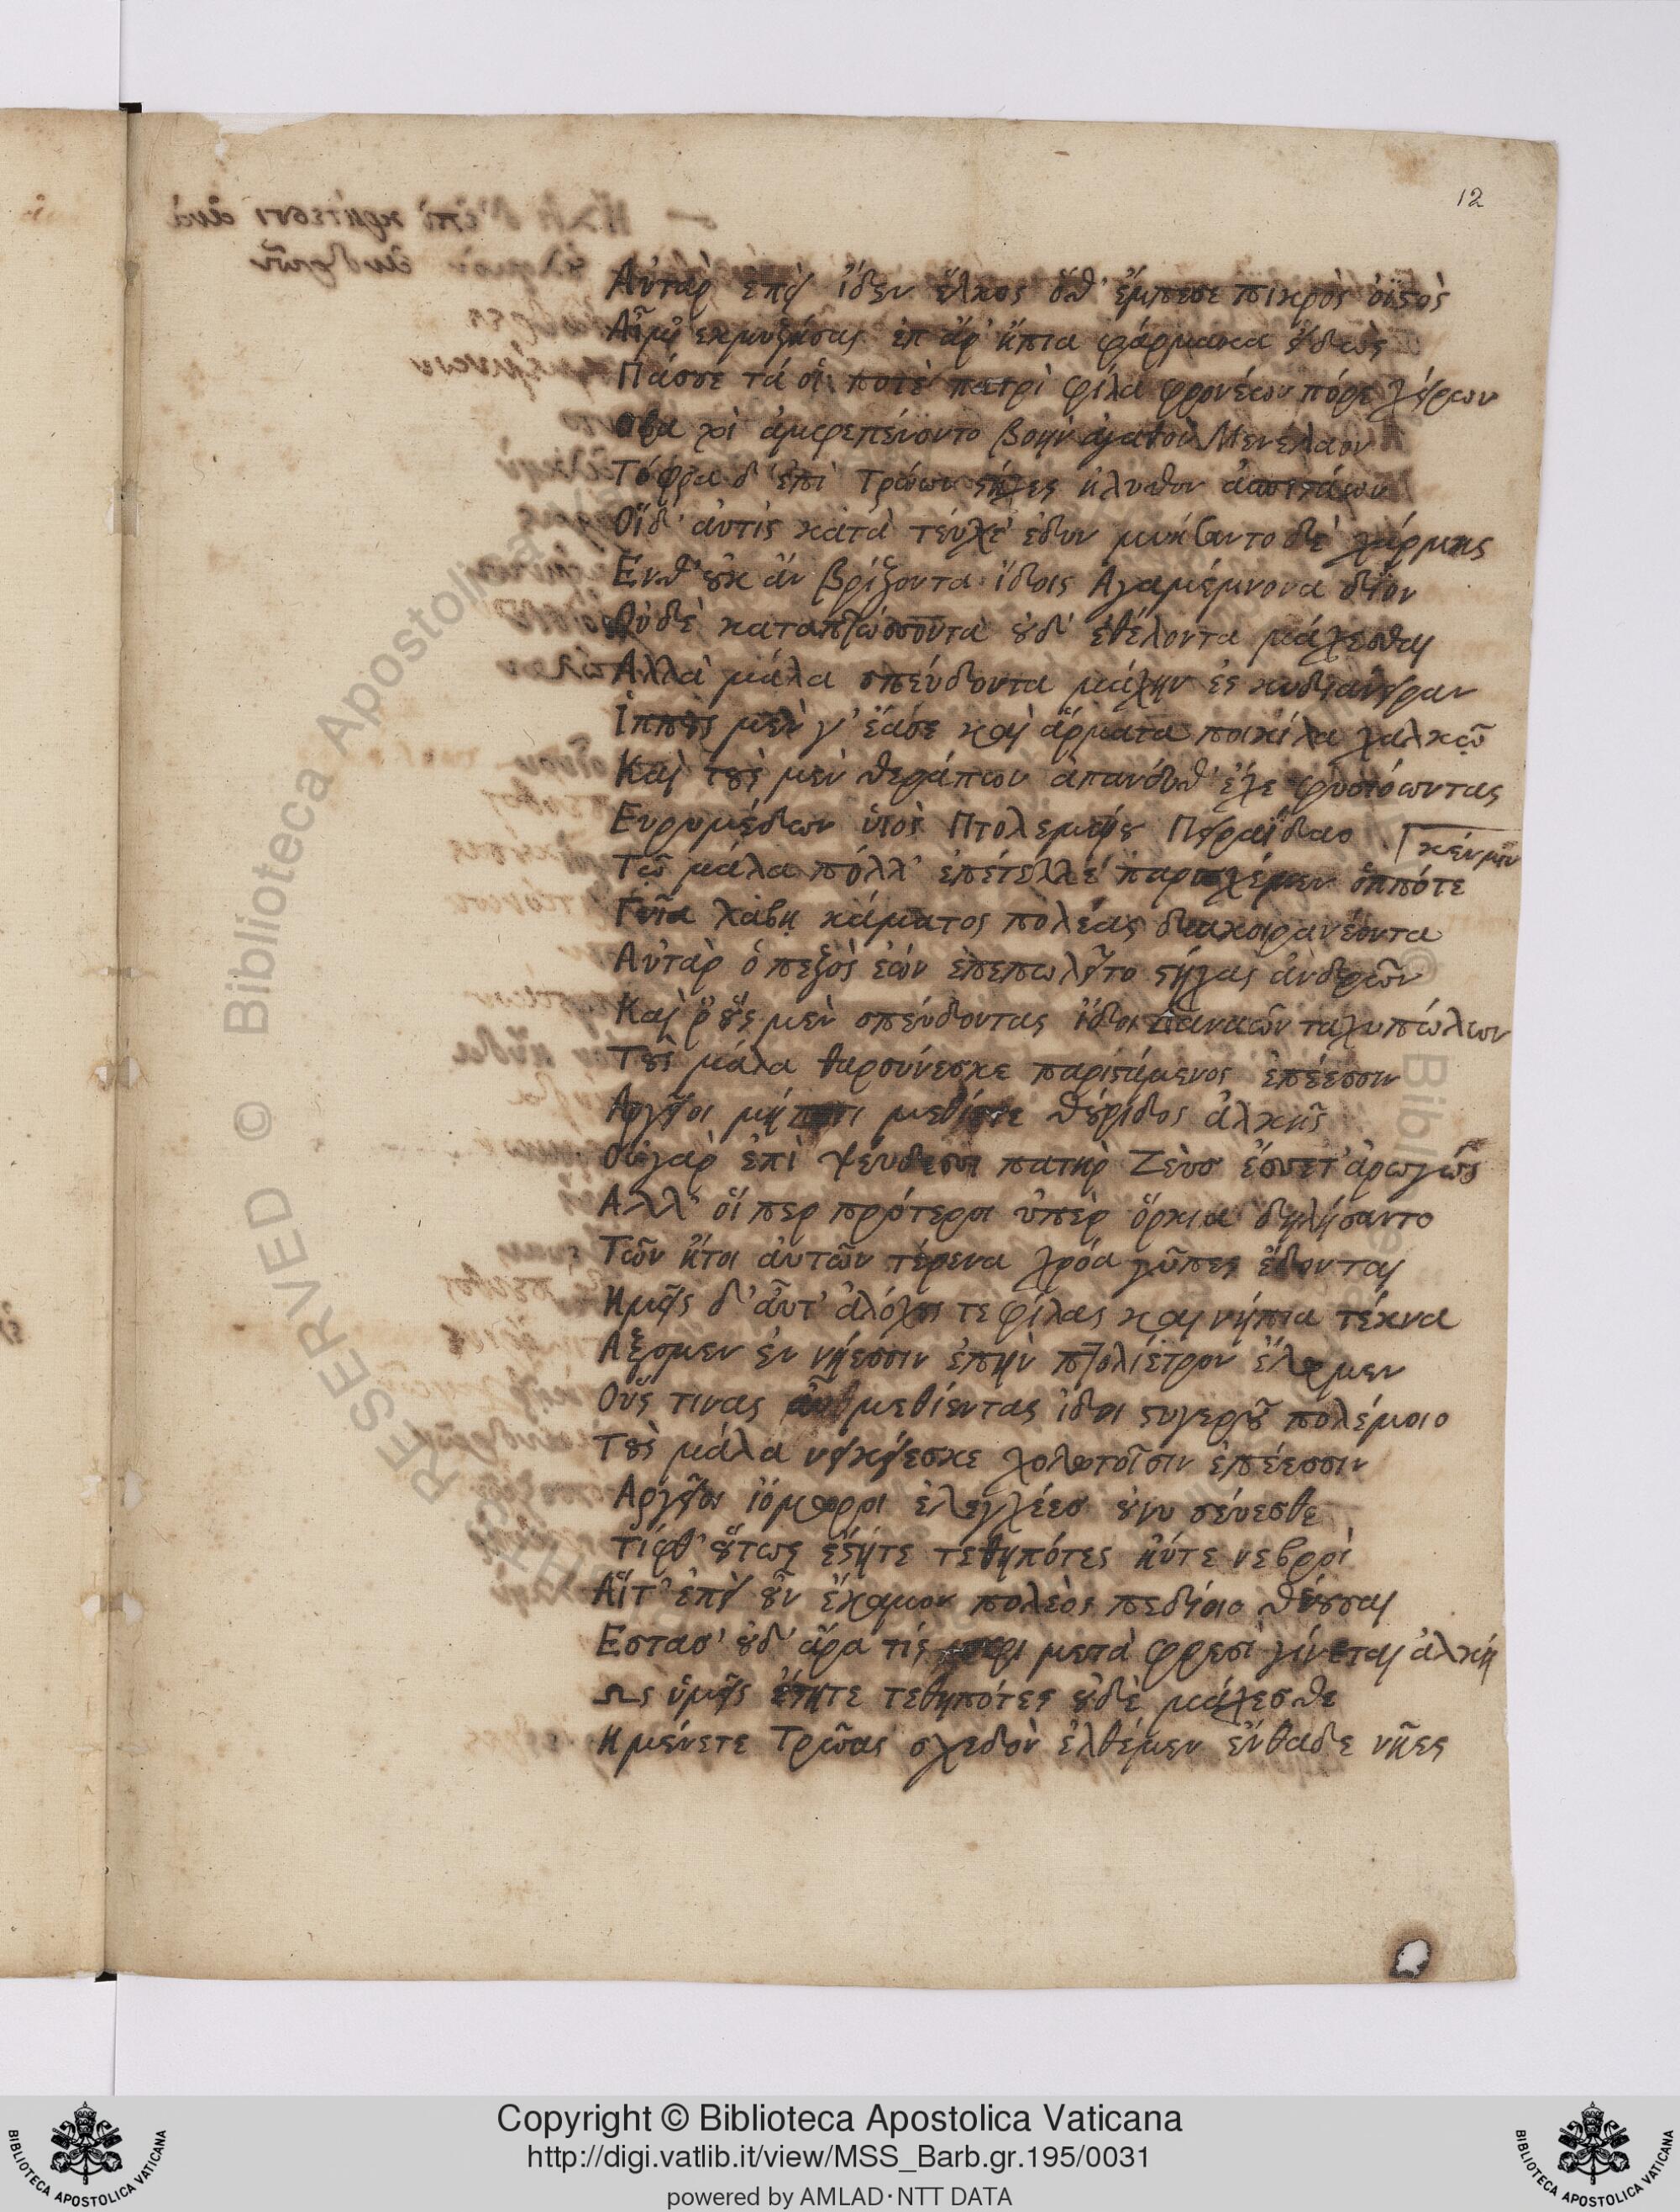 12
Αὐτὰρ ἐπεὶ ἴδεν ἕλκος ὅθ' ἔμπεσε πικρὸς ὀϊστὸς
Αἷμ' ἐκμυζήσας ἐπ' ἄρ' ἤπια φάρμακα εἰδὼς
Πάσσε τά οἵ ποτὲ πατρὶ φίλα φρονέων πόρε χείρων
Οφρα τοὶ ἀμφεπένοντο βοὴν ἀγαθὸν Μενέλαον
Τόφρα δ' ἐπὶ Τρώων στίχες ἤλυθον ἀσπιστάων
Οἵδ' ἀυτις κατὰ τέυχε' ἔδυν μνήσαντο δὲ χάρμης
Ενθ' οὐκ ἂν βρίζοντα ἴδοις Αγαμέμνονα δῖον
Οὐδὲ καταπτώσσοντα οὐδ' ἐθέλοντα μάχεσθαι
Αλλὰ μάλα σπέυδοντα μάχην ἐς κυδιάνειραν
Ἵππους μὲν γ' ἔασε καὶ ἅρματα ποικίλα χαλκῷ
Καὶ τοὺς μὲν θεράπων ἀπανευθ' ἔχε φυσιόωντας
Ευρυμέδων ὑιὸς Πτολεμαίου Πειραΐδαο
κέν μιν
Τῷ μάλα πόλλ' ἐπέτελλε παρισχέμεν ὁππότε
Γυῖα λάβῃ κάματος πολέας διακοιρανέοντα
Αὐτὰρ ὁ πεζὸς ἐὼν ἐπεπωλεῖτο στίχας ἀνδρῶν
Καὶ ῥ' οὓς μὲν σπέυδοντας ἴδοι Δαναῶν ταχυπώλων
Τοὺς μάλα θαρσύνεσκε παριστάμενος ἐπέεσσιν
Αργεῖοι μήπωτι μεθίετε θούριδος ἀλκῆς
Οὐ γὰρ ἐπὶ ψέυδεσσι πατὴρ Ζεὺσ ἔσσετ' ἀρωγὸς
Αλλ' οἵ περ πρότεροι ὑπὲρ ὅρκια δηλήσαντο
Τῶν ἤτοι ἀυτῶν τέρενα χρόα γῦπες ἔδονται
Ημεῖς δ' ἆυτ' ἀλόχους τε φίλας καὶ νήπια τέκνα
Αξομεν ἐν νήεσσιν ἐπὴν πτολίεθρον ἕλωμεν
Οὕς τινας ἂυ μεθίεντας ἴδοι στυγεροῦ πολέμοιο
Τοὺς μάλα νεικείεσκε χολωτοῖσιν ἐπέεσσιν
Αργεῖοι ἰόμωροι ἐλεγχέεσ οὔνυ σέυεσθε
Τίφθ' οὕτως ἔστητε τεθηπότες ἠύτε νεβροὶ
Αἵτ' ἐπεὶ οὖν ἔκαμον πολέος πεδίοιο θέουσαι
Εστασ' οὐδ' ἄρα τίς σφισι μετὰ φρεσὶ γίνεται ἀλκή
Ως ὑμεῖς ἔστητε τεθηπότες οὐδὲ μάχεσθε
Η μένετε Τρῶας σχεδὸν ἐλθέμεν ἔνθαδε νῆες
RESERVED © Biblioteca Apostolica
Copyright © Biblioteca Apostolica Vaticana
http://digi.vatlib.it/view/MSS_Barb.gr.195/0031
powered by AMLAD·NTT DATA
BIBLIOTECA APOSTOLICA VATICANA
BIBLIOTECA APOSTOLICA VATICANA